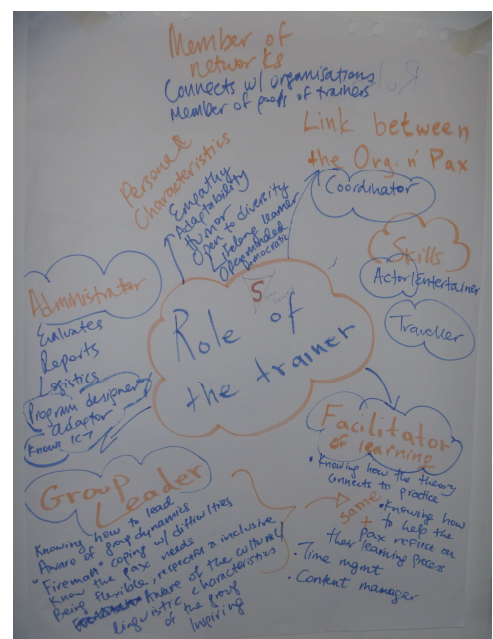 Member of
networks
Connects w/ organisations
Member of pools of trainers
Link between
the Org. n' Pax
Coordinator
Personal
Characteristics
Empathy
Adaptability
Humor
Open to diversity
Lifelong learner
Openminded
Democratic
Skills
Actor/Entertainer
Traveller
Administrator
Evaluates
Reports
Logistics
Program designer
adaptor
Knows ICT
5
Role of
the trainer
Facilitator
of learning
• Knowing how the theory
connects to practice
• Knowing how
to help the
Pax reflect on
their learning process
• Time mgmt
• Content manager
same
+
Group
Leader
Knowing how to lead
Aware of group dynamics
"Fireman" coping w/ difficulties
Know the pax needs
Being flexible, respectful & inclusive
Aware of the cultural/
linguistic characteristics
of the group
Inspiring